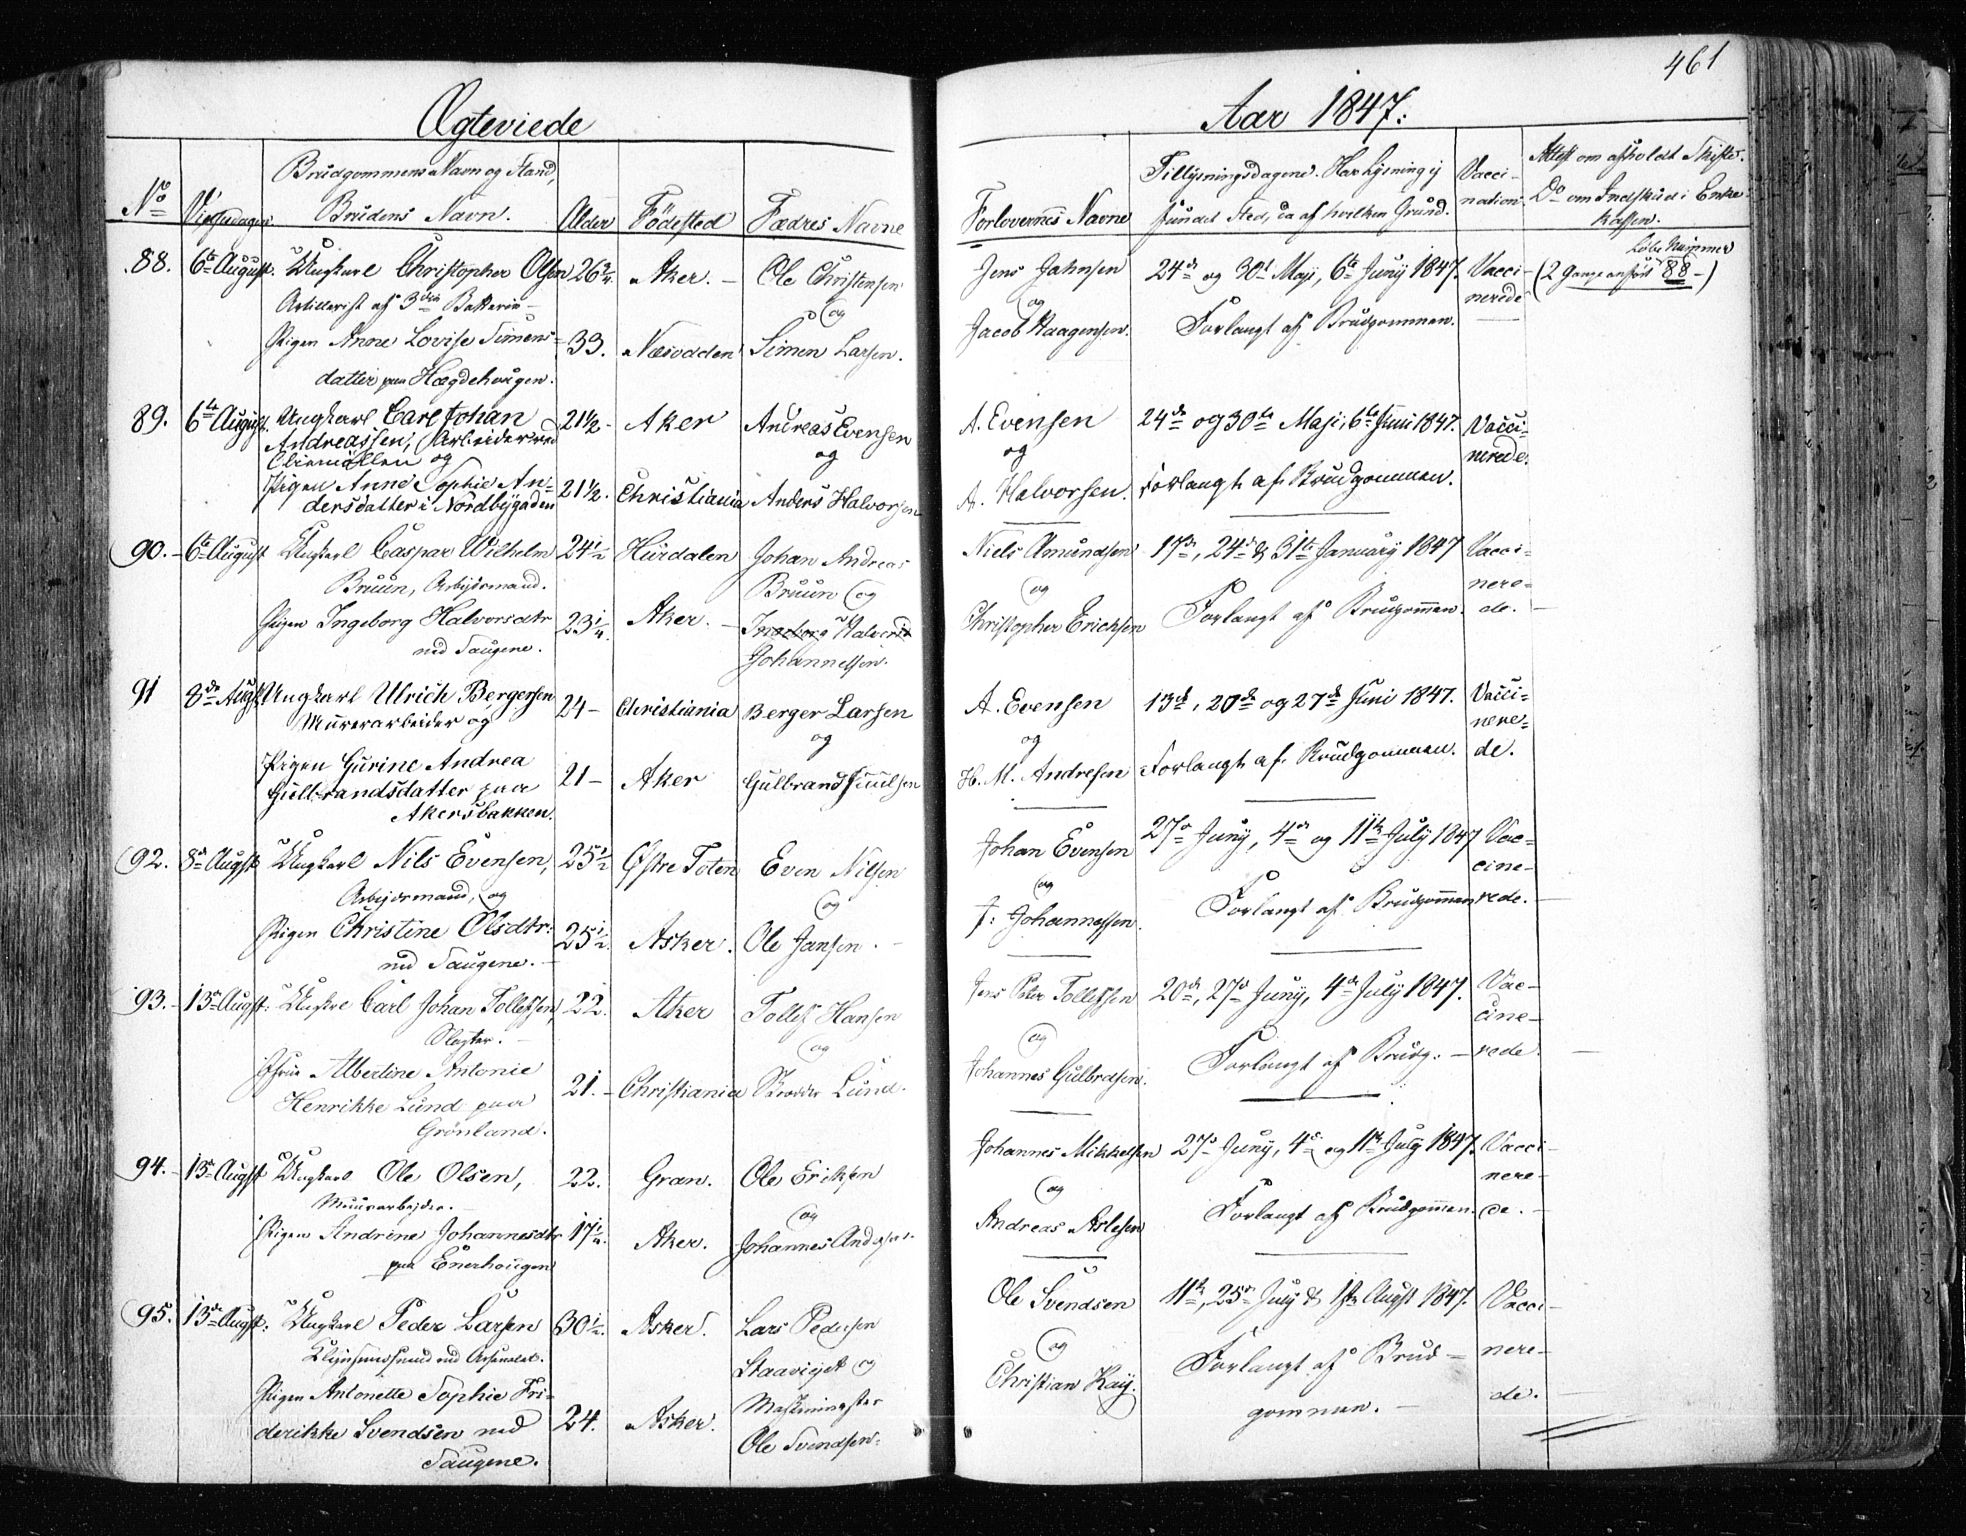 461
Ægteviede
Aar 1847.
No
Vielsesdagen
Brudgommens Navn og Stand,
Brudens Navn.
Alder
Födested
Fædres Navne
Forlovernes Navne
Tillysningsdagene. Har Lysning ej
fundet Sted, da af hvilken Grund.
Vacci-
nation
Attest om afholdt Skifte.
Do om Indskud i Enke-
kassen.
88. 6te August. Ungkarl Christopher Olsen 26 Aker. Ole Christensen
Artillerist af 3die Batterie
og
Pigen Anne Lovise Simens- 33. Næsodden Simen Larsen.
datter paa Hægdehougen.
Jens Jahnsen 24de og 30te Maji, 6te Juny 1847. Vacci-
og nerede
Jacob Haagensen. Forlangt af Brudgommen.
Löbe Nummer
(2 Gange anført 88-)
89. 6te August. Ungkarl Carl Johan 21½ Aker Andreas Evensen
Andreassen, Arbeider ved
Oliemøllen og og
Pigen Anne Sophie An- 21½. Christiania Anders Halvorsen
dersdatter i Nordbygaden
A. Evensen 24de og 30te Maji, 6te Juni 1847. Vacci-
og nerede.
A. Halvorsen. Forlangt af Brudgommen.
90. 6te August Ungkarl Caspar Wilhelm 24½ Hurdalen Johan Andreas
Bruun, Arbejdsmand. Bruun og
Pigen Ingeborg Halvorsdtr 23¼ Aker. Ingeborg Halvorsd
ved Saugene. Johannessen.
Niels Amundsen 17de, 24de & 31te January 1847 Vacci-
og nere-
Christopher Erichsen Forlangt af Brudgommen. de.
91 8de August Ungkarl Ulrich Bergersen 24 Christiania Berger Larsen
Murerarbeider og og
Pigen Gurine Andrea 21 Aker Gulbrand
Gulbrandsdatter paa
Akersbakken.
A. Evensen 13de, 20de og 27de Juni 1847. Vacci-
og nere-
H. M. Andresen Forlangt af Brudgommen. de.
92. 8de August Ungkarl Nils Evensen, 25½ Østre Toten Even Nilsen
Arbejdsmand, og og
Pigen Christine Olsdtr: 25½. Asker. Ole Jansen.
ved Saugene.
Johan Evensen 27de Juny, 4de og 11te July 1847 Vac-
og cine-
J: Johannessen. Forlangt af Brudgommen rede.
93. 13de Augst: Ungkarl Carl Johan Tollefsen, 22. Aker Tollef Hansen
Slagter. og
Jfru Albertine Antonie 21. Christiania Skrædder Lund.
Henrikke Lund paa
Grönland.
Jens Peter Tollefsen 20de, 27de Juny, 4de July 1847. Vac-
og cine-
Johannes Gulbrdsen. Forlangt af Brudg: rede.
94. 13de August Ungkarl Ole Olsen, 22. Gran. Ole Eriksen
Muurarbejder. og
Pigen Andrine Johannesdtr 17¼. Aker. Johannes
paa Enerhougen
Johannes Mikkelsen 27de Juny, 4de og 11te July 1847. Vacci-
og nere-
Andreas Aslesen Forlangt af Brudgommen. de.
95. 13de Augst: Ungkarl Peder Larsen 30½. Asker. Lars Pedersen
Klejnsmedsvend ved Arsenalet. Staaviget og
Pigen Antonette Sophie Fri- 24. Asker. Maskinmester
derikke Svendsen ved Ole Svendsen.
Saugene.
Ole Svendsen 11te, 25de July & 1ste Augst 1847. Vacci-
og Forlangt af Brud- nere-
Christian Kay. gommen. de.